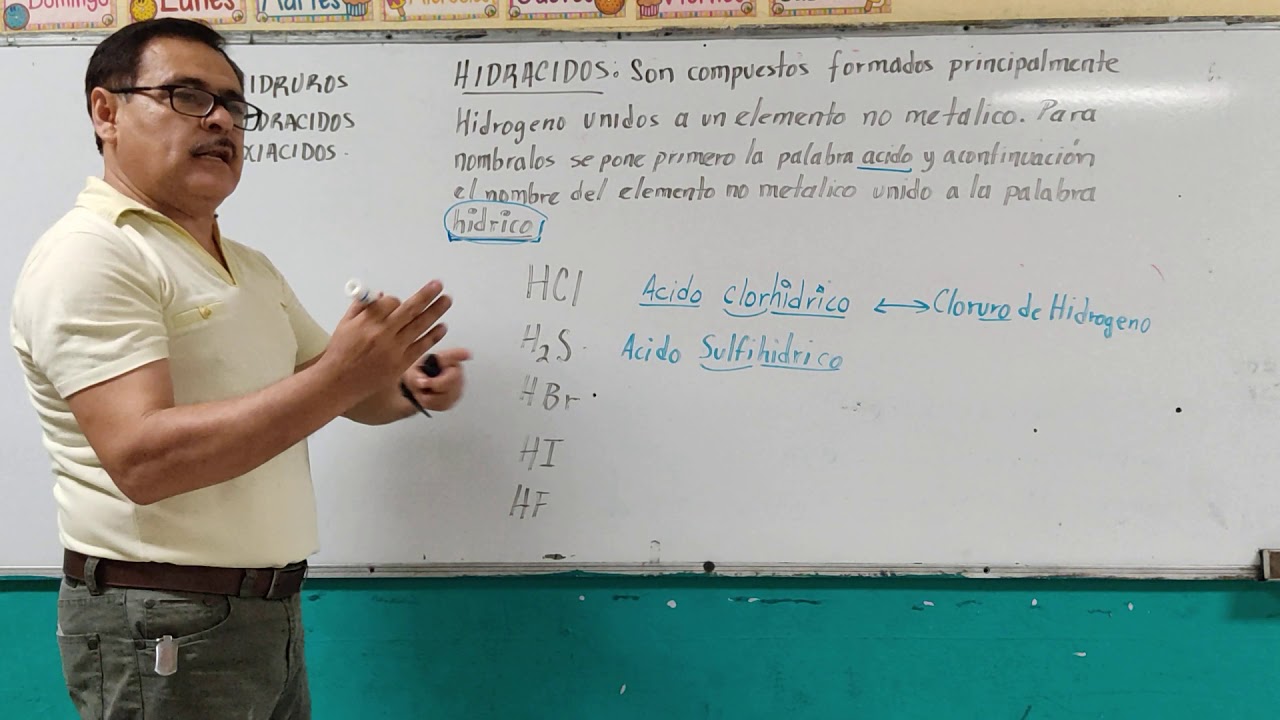 Domingo Lunes Martes Miercoles Jueves Viernes
IDRUROS
DRACIDOS
XIACIDOS.
HIDRACIDOS: Son compuestos formados principalmente
Hidrogeno unidos a un elemento no metalico. Para
nombralos se pone primero la palabra acido y acontinuación
el nombre del elemento no metalico unido a la palabra
hidrico
HCl Acido clorhidrico ↔ Cloruro de Hidrogeno
H₂S. Acido Sulfihidrico
HBr.
HI
HF